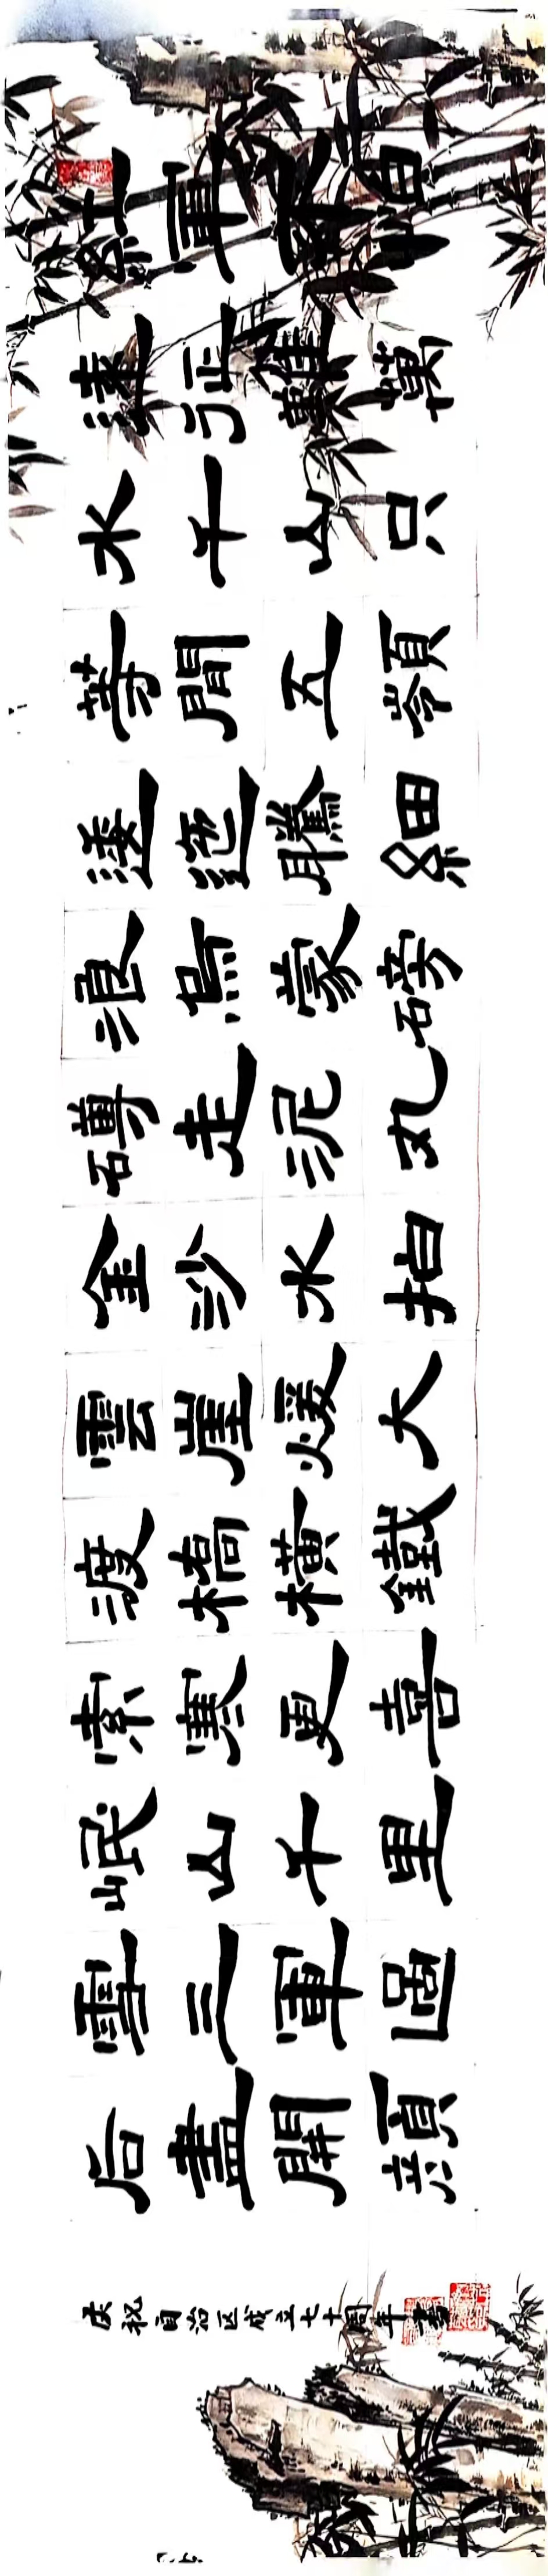 紅軍不怕
遠征難萬
水千山只
等閒五嶺
逶迤騰細
浪烏蒙磅
礴走泥丸
金沙水拍
雲崖煖大
渡橋橫鐵
索寒更喜
岷山千里
雪三軍過
后盡開顏
庆祝自治区成立七十周年書